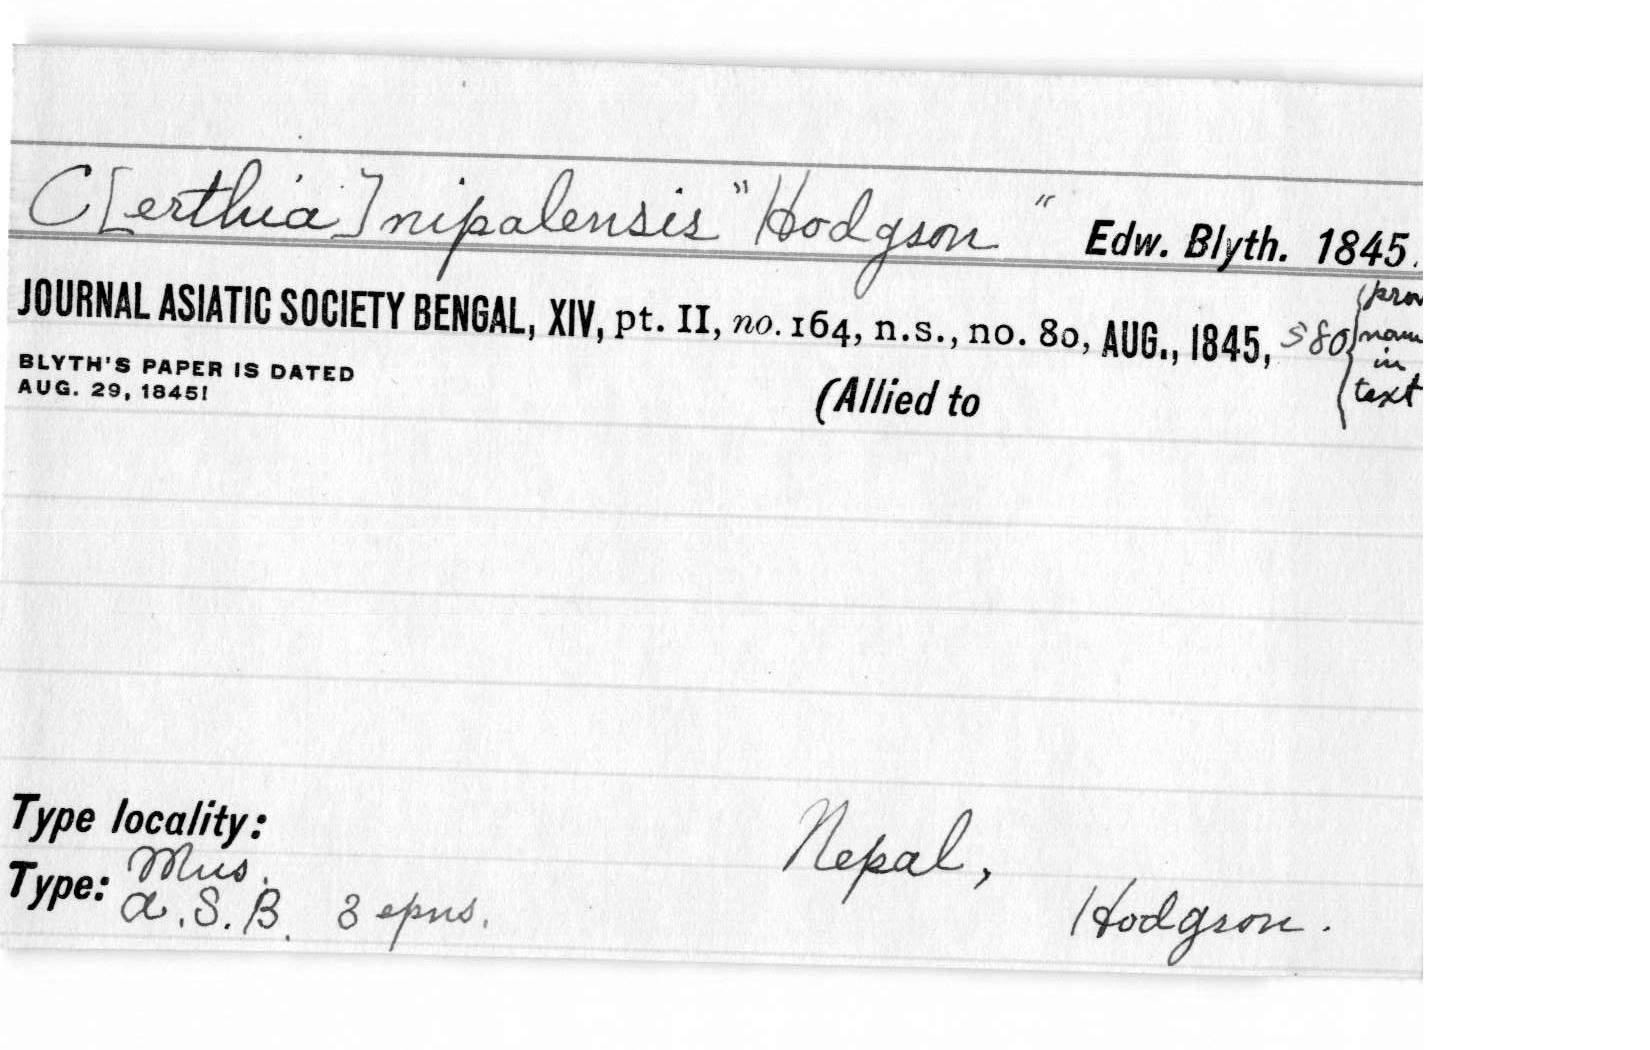 C[erthia] nipalensis "Hodgson" Edw. Blyth. 1845.
JOURNAL ASIATIC SOCIETY BENGAL, XIV, pt. II, no. 164, n.s., no. 80, AUG., 1845, 580
in
text
BLYTH'S PAPER IS DATED
AUG. 29, 1845!
(Allied to
Type locality: Nepal,
Type: Mus.
A.S.B. 3 Hodgson.